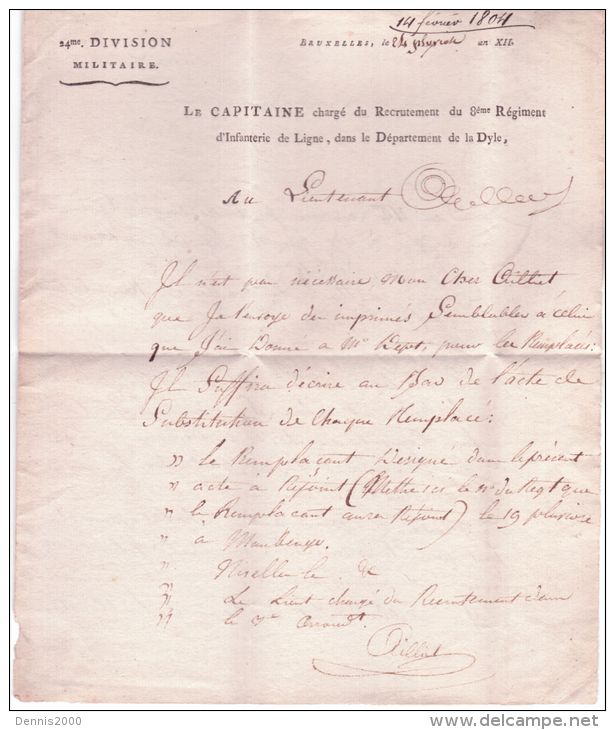 14 février 1804
24me. DIVISION
MILITAIRE.
BRUXELLES, le 24 pluviose an XII.
LE CAPITAINE chargé du Recrutement du 8ème Régiment
d'Infanterie de Ligne, dans le Département de la Dyle,
Au Lieutenant
Il n'est pas nécessaire, mon cher Oillict
que Je t'envoye des imprimés Semblables à celui
que J'ai Donné a Mr Dept, pour les Remplacés:
Il Suffira d'écrire au Bas de l'acte de
Substitution de chaque Remplacé:
" le Remplacant Designé dans le présent
" acte a Rejoint (Mettre ici le no du Regt que
" le Remplacant aura Rejoint) le 19 pluviose
" à Maubeuge.
" Nivelles le . &c
" Le Lieut chargé du Recrutement dans
" le 3e arrondt.
Oillict
Dennis2000
www.delcampe.net